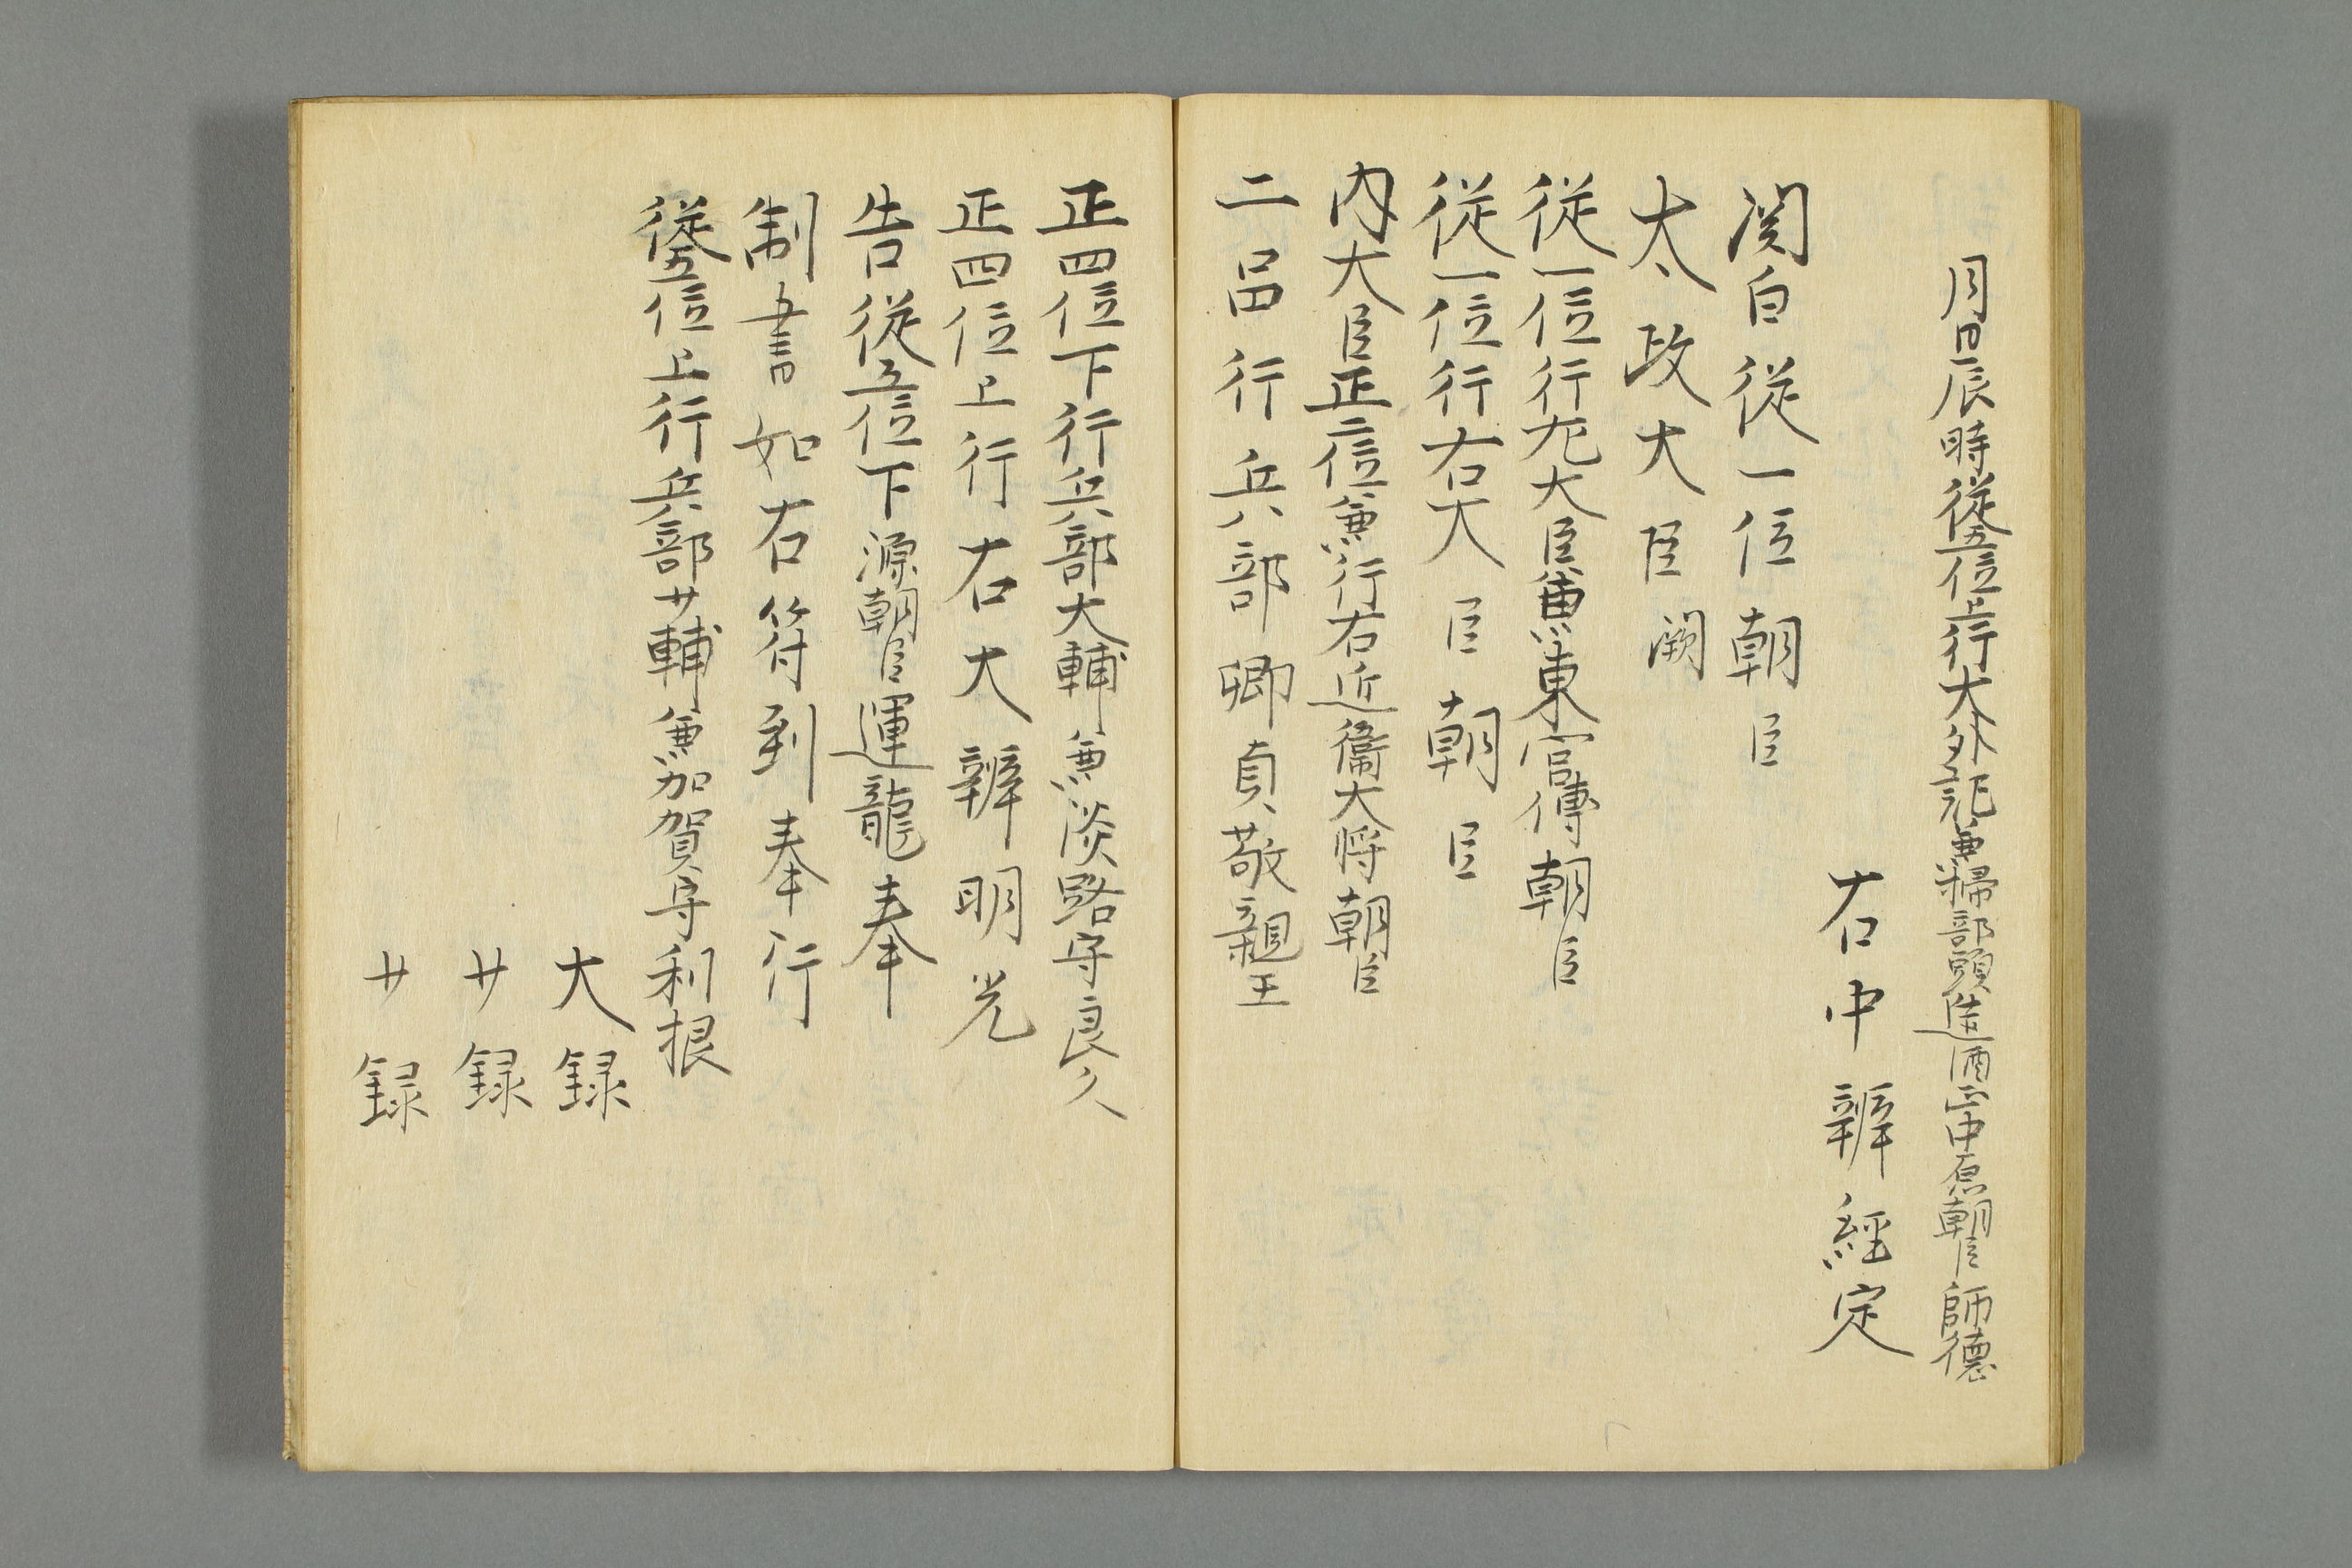 月日辰時従五位上行大外記兼掃部頭造酒正中原朝臣師德
右中辨經定
関白従一位朝臣
太政大臣闕
従一位行左大臣兼東宮傅朝臣
従一位行右大臣朝臣
内大臣正二位兼行右近衞大将朝臣
二品行兵部卿貞敬親王
正四位下行兵部大輔兼淡路守良久
正四位上行右大辨明光
告従五位下源朝臣運龍奉
制書如右符到奉行
従五位上行兵部少輔兼加賀守利根
大録
少録
少録